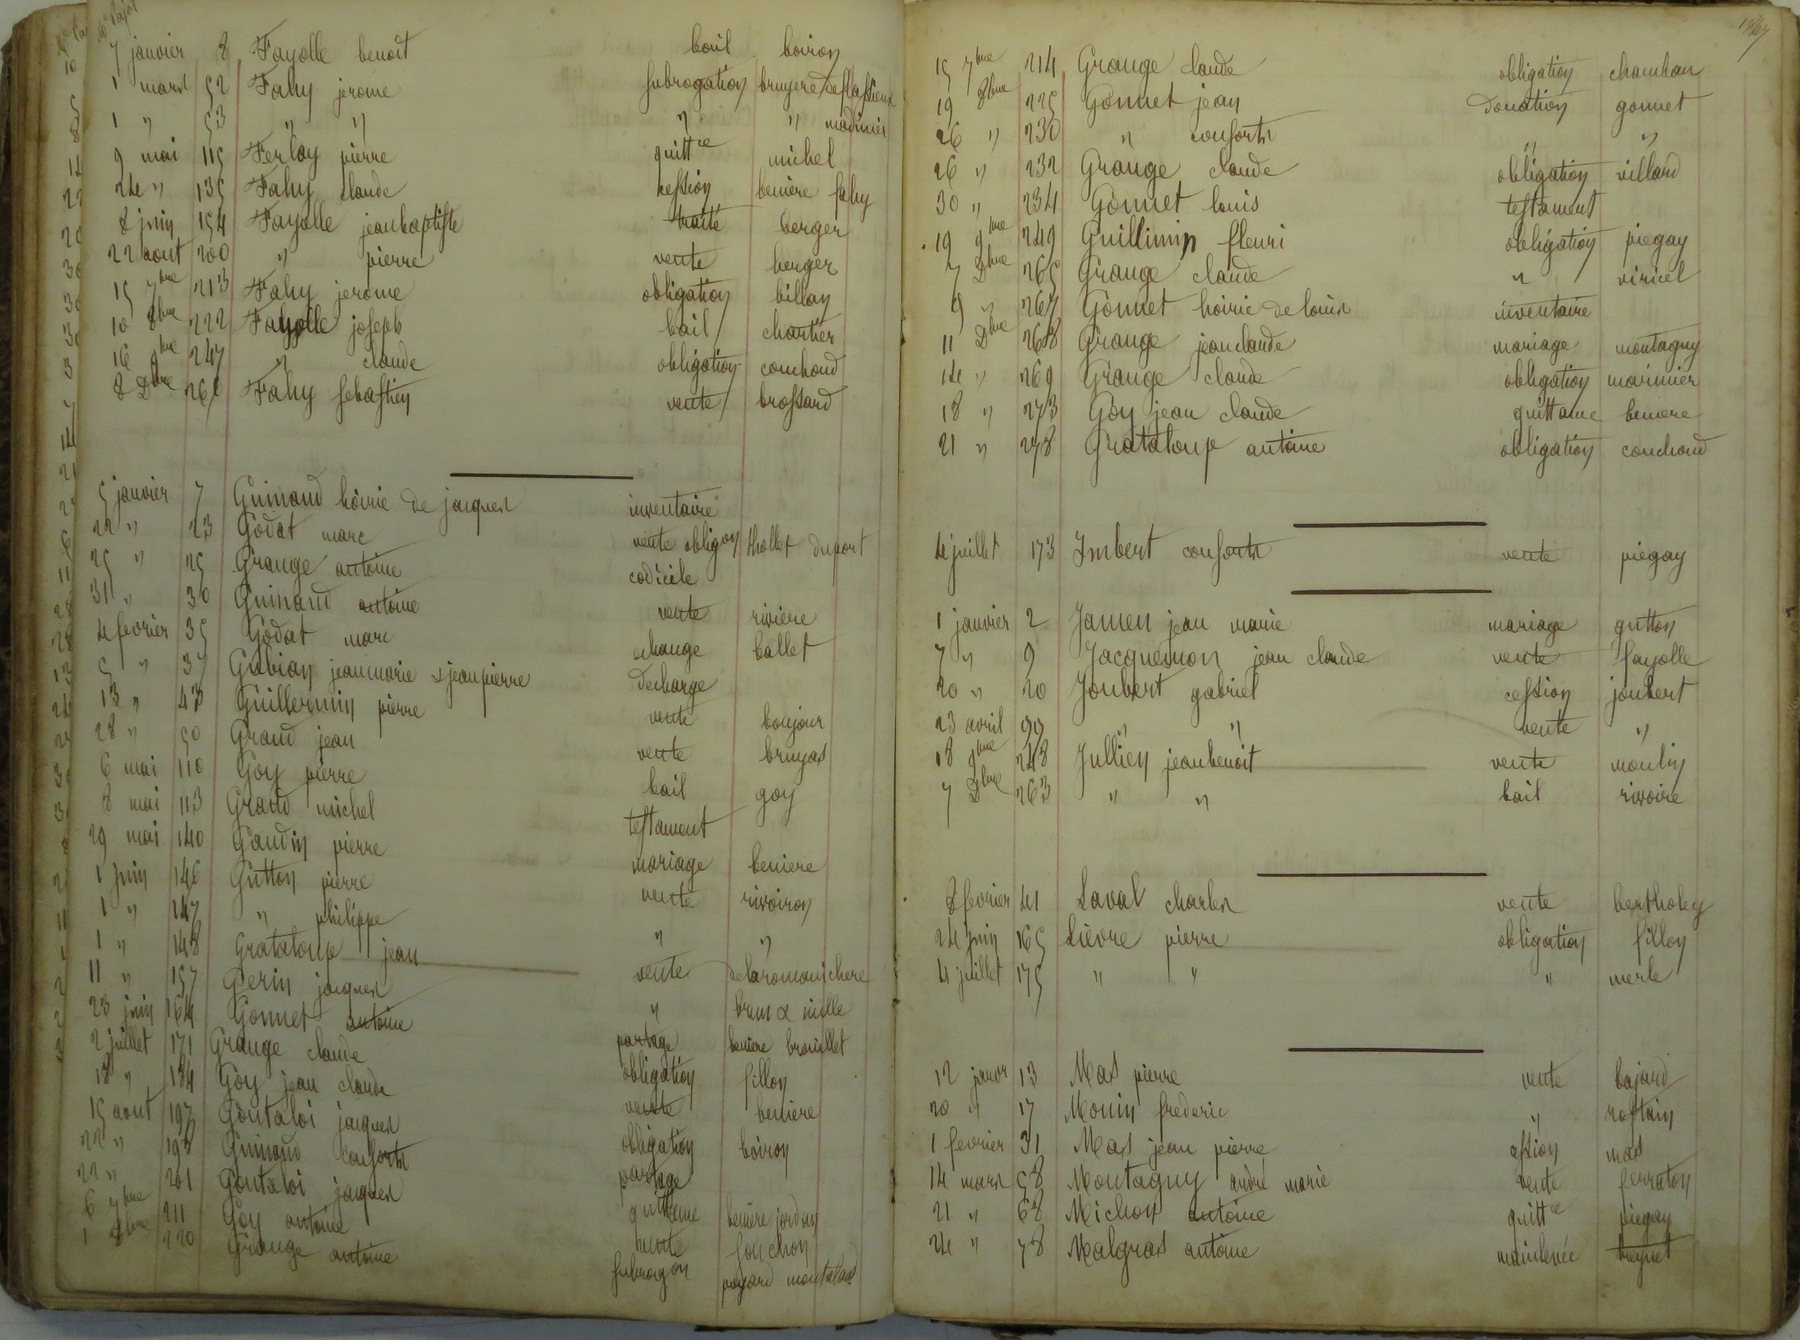 7 janvier 8 Fayolle benoit bail boiron
1 mars 52 Fahy jerome subrogation bruyere deflassieux
1 " 53 " " " " madinier
9 mai 115 Ferlay pierre quittce michel
24 " 135 Fahy claude cession beniere fahy
8 juin 154 Fayolle jeanbaptiste traité berger
22 aout 200 " pierre vente berger
15 7bre 213 Fahy jerome obligation billay
10 8bre 222 Fayolle joseph bail chartier
16 9bre 247 " claude obligation couchoud
8 Dbre 261 Fahy sebastien vente brossard
5 janvier 7 Guinand hoirie de jacques inventaire
22 " 23 Godat marc vente obligon thollet duport
25 " 25 Grange antoine codicile
31 " 30 Guinand antoine vente riviere
4 fevrier 35 Godat marc echange ballet
5 " 37 Gabian jeanmarie & jeanpierre decharge
13 " 43 Guillermin pierre vente boujour
28 " 50 Grand jean vente bruyas
6 mai 110 Goy pierre bail goy
8 mai 113 Grand michel testament
29 mai 140 Gaudin pierre mariage beniere
1 juin 146 Gutton pierre vente rivoiron
1 " 147 " philippe " "
1 " 148 Grataloup jean vente delaromanichere
11 " 157 Gerin jacques " brun & nielle
23 juin 164 Gonnet antoine partage beniere brouillet
2 juillet 171 Grange claude obligation fillon
18 " 184 Goy jean claude vente beniere
15 aout 197 Goutaloi jacques obligation boiron
22 " 198 Guinand conforts partage
22 " 201 Goutaloi jacques quittance beniere jordan
6 7bre 211 Goy antoine vente fouchon
1 8bre 220 Grange antoine subrogon poyard montalard
15 7bre 214 Grange claude obligation chambau
19 8bre 225 Gonnet jean donation gonnet
26 " 230 " conforts " "
26 " 232 Grange claude obligation villard
30 " 234 Gonnet louis testament
19 9bre 249 Guillimin fleuri obligation piegay
7 Dbre 265 Grange claude " viricel
9 " 267 Gonnet hoirie de louis inventaire
11 Dbre 268 Grange jeanclaude mariage montagny
14 " 269 Grange claude obligation marinier
18 " 273 Goy jean claude quittance beniere
21 " 278 Grataloup antoine obligation couchoud
4 juillet 173 Imbert conforts vente piegay
1 janvier 2 Jamen jean marie mariage gutton
7 " 9 Jacquemon jean claude vente fayolle
20 " 20 Joubert gabriel cession joubert
23 avril 99 " " vente "
18 9bre 248 Jullien jeanbenoit vente moulin
7 Dbre 263 " " bail rivoire
8 fevrier 41 Laval charles vente bertholey
24 juin 165 Lièvre pierre obligation filloy
4 juillet 175 " " " merle
12 janvr 13 Mas pierre vente bajard
20 " 17 Monin frederic " rostain
1 fevrier 31 Mas jean pierre cession mas
14 mars 58 Montagny andré marie vente ferraton
21 " 68 Michon antoine quittce piegay
24 " 78 Malgras antoine mainlevée